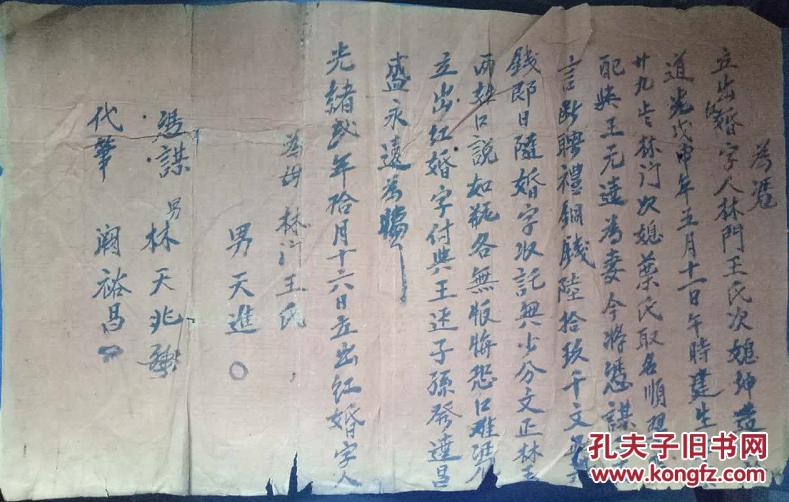 為憑
立出婚字人林門王氏次媳坤造
道光戊申年五月十一日午時建生
廿九歲林門次媳葉氏取名順
配與王元達為妻今將憑謀
言斷聘禮銅錢陸拾玖千文
錢即日隨婚字收訖無少分文正林王
兩造口說如瓶各無反悔恐口难憑
立出紅婚字付與王廷子孫發達昌
盛永遠為據
光緒貳年拾月十六日立出紅婚字人
林門王氏
男天進〇
馮謀 男林天兆
代筆 闕裕昌
孔夫子旧书网
www.kongfz.com